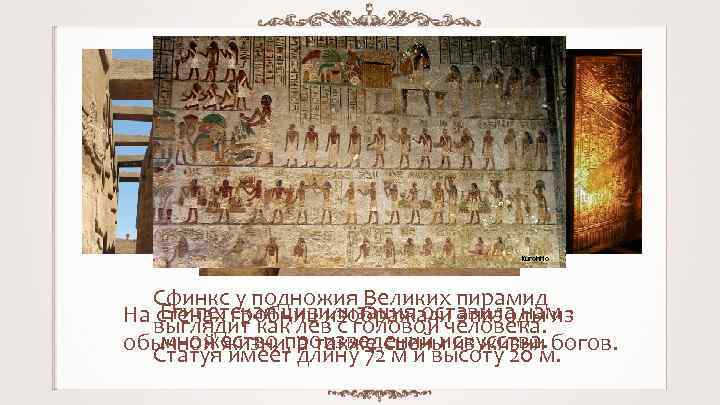 Сфинкс у подножия Великих пирамид
выглядит как лев с головой человека.
Статуя имеет длину 72 м и высоту 20 м.
На стенах гробниц изображали эпизоды из
обычной жизни, а также сцены из жизни богов.
Египетская цивилизация оставила нам
множество произведений искусства.